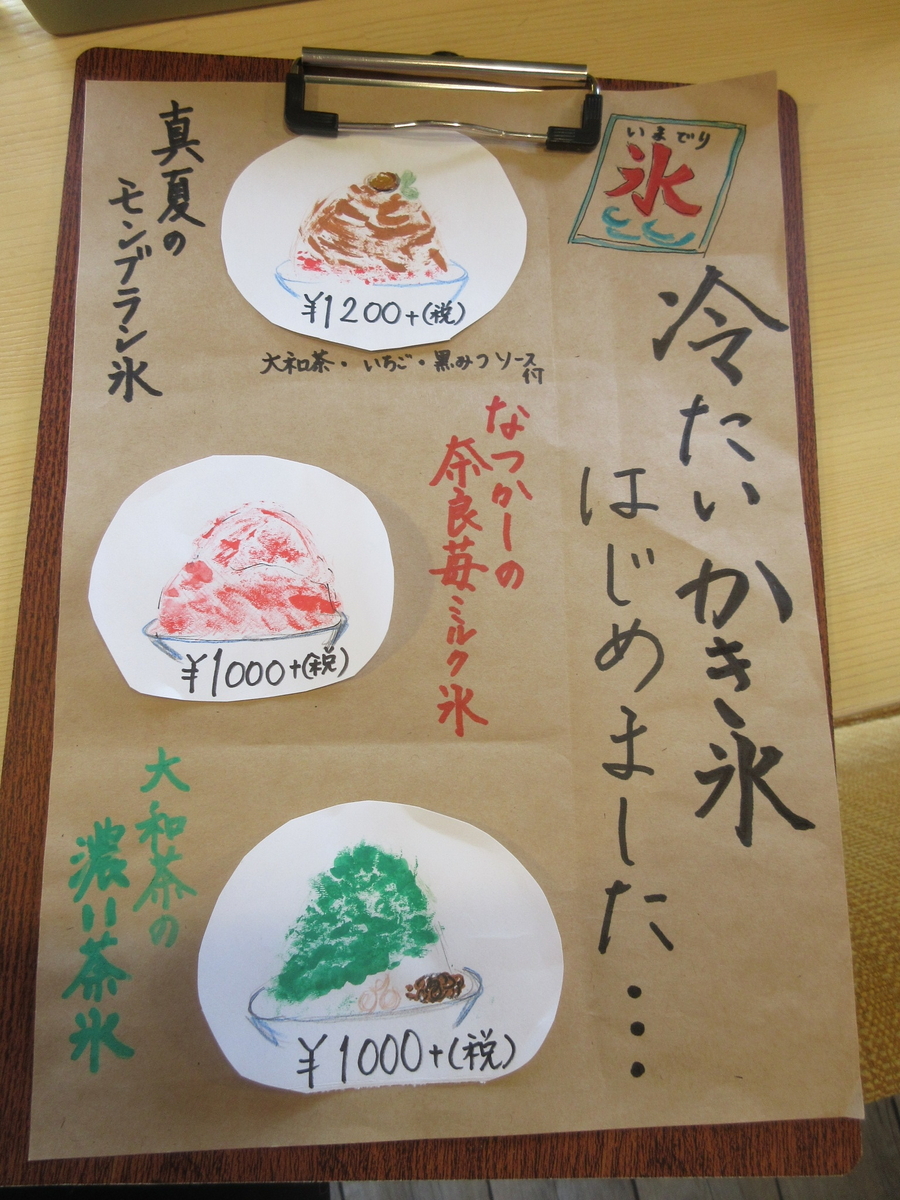 いまでり
氷
冷たいかき氷
はじめました・・・
真夏の
モンブラン氷
¥1200+(税)
大和茶・いちご・黒みつソース
付
なつかしの
奈良苺ミルク氷
¥1000+(税)
大和茶の
濃い茶氷
¥1000+(税)